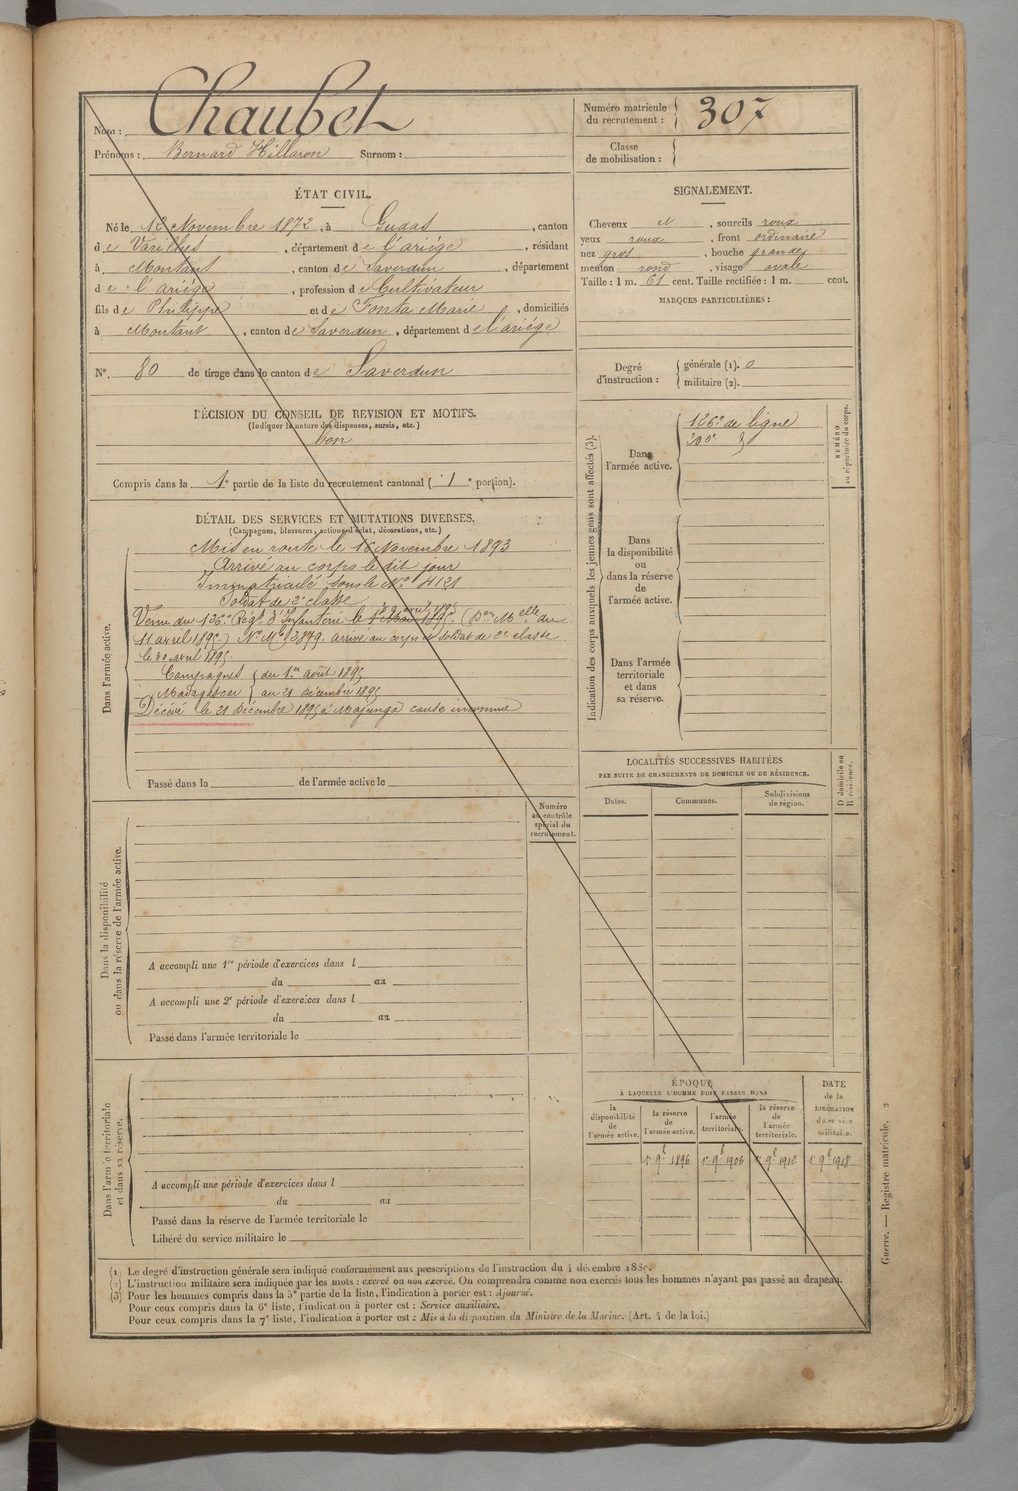 Nom : Chaubet
Prénoms : Bernard Hillaron Surnom :
Numéro matricule du recrutement : 307
Classe de mobilisation :
ÉTAT CIVIL.
Né le 12 Novembre 1872, à Gudas, canton
de Varilhes, département de l'ariége, résidant
à Montaut, canton de Saverdun, département
de l'ariége, profession de Cultivateur
fils de Philippe et de Fonta Marie, domiciliés
à Montaut, canton de Saverdun, département de l'ariége
N°. 80 de tirage dans le canton de Saverdun
DÉCISION DU CONSEIL DE REVISION ET MOTIFS.
(Indiquer la nature des dispenses, sursis, etc.)
bon
Compris dans la 1e partie de la liste du recrutement cantonal (1e portion).
DÉTAIL DES SERVICES ET MUTATIONS DIVERSES.
(Campagnes, blessures, actions d'éclat, décorations, etc.)
Dans l'armée active.
Mis en route le 16 Novembre 1893
Arrivé au corps le dit jour
Immatriculé sous le N° 4121
Soldat de 2e classe
Venu du 126e Régt d'Infanterie le 1er Mai 1895 (Don Melle du
11 avril 1895) N° Mle 3879. arrivé au corps et soldat de 2e classe
le 30 avril 1895.
Campagnes { du 1er août 1895
Madagascar } au 21 décembre 1895
Décédé le 21 Décembre 1895 à Majunga cause inconnue
Passé dans la de l'armée active le
Numéro au contrôle spécial du recrutement.
Dans la disponibilité ou dans la réserve de l'armée active.
A accompli une 1re période d'exercices dans l
du au
A accompli une 2e période d'exercices dans l
du au
Passé dans l'armée territoriale le
Dans l'armée territoriale et dans sa réserve.
A accompli une période d'exercices dans l
du au
Passé dans la réserve de l'armée territoriale le
Libéré du service militaire le
SIGNALEMENT.
Cheveux et, sourcils roux
yeux roux, front ordinaire
nez gros, bouche grande
menton rond, visage ovale
Taille : 1 m. 61 cent. Taille rectifiée : 1 m. cent.
MARQUES PARTICULIÈRES :
Degré d'instruction :
générale (1). 0
militaire (2).
Indication des corps auxquels les jeunes gens sont affectés (3).
NUMÉRO au répertoire du corps.
Dans l'armée active.
126e de ligne
200e
Dans la disponibilité ou dans la réserve de l'armée active.
Dans l'armée territoriale et dans sa réserve.
LOCALITÉS SUCCESSIVES HABITÉES
PAR SUITE DE CHANGEMENTS DE DOMICILE OU DE RÉSIDENCE.
Dates. Communes. Subdivisions de région. D domicile ou R résidence.
ÉPOQUE
À LAQUELLE L'HOMME DOIT PASSER DANS
la disponibilité de l'armée active.
la réserve de l'armée active.
l'armée territoriale.
la réserve de l'armée territoriale.
DATE de la LIBÉRATION du service militaire.
1er 9b 1896 1er 9b 1906 1er 9b 1912 1er 9b 1918
(1) Le degré d'instruction générale sera indiqué conformément aux prescriptions de l'instruction du 4 décembre 1889.
(2) L'instruction militaire sera indiquée par les mots : exercé ou non exercé. On comprendra comme non exercés tous les hommes n'ayant pas passé au drapeau.
(3) Pour les hommes compris dans la 5e partie de la liste, l'indication à porter est : Ajourné.
Pour ceux compris dans la 6e liste, l'indication à porter est : Service auxiliaire.
Pour ceux compris dans la 7e liste, l'indication à porter est : Mis à la disposition du Ministre de la Marine. (Art. 4 de la loi.)
Guerre. — Registre matricule. 2